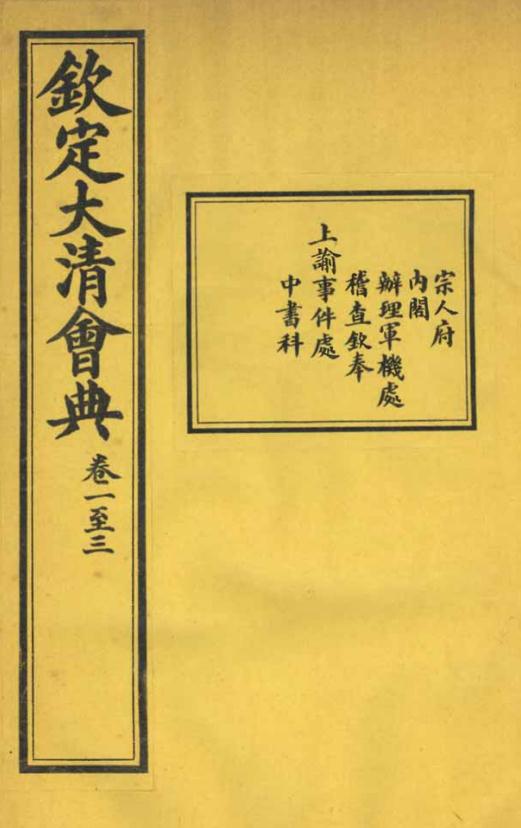 欽定大清會典
卷一至三
宗人府
內閣
辦理軍機處
稽查欽奉
上諭事件處
中書科